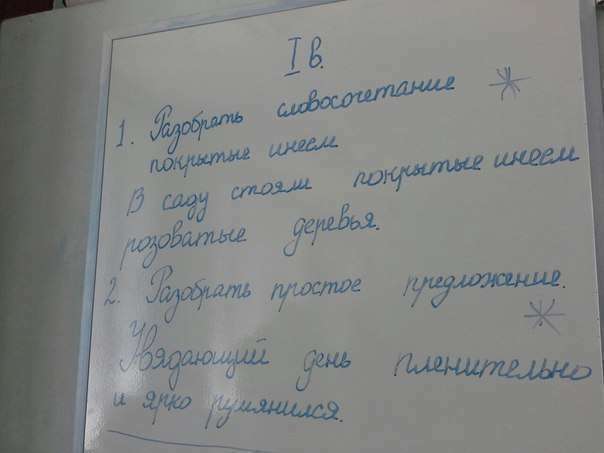 I в.
1. Разобрать словосочетание
покрытые инеем
В саду стояли покрытые инеем
розоватые деревья.
2. Разобрать простое предложение.
Увядающий день пленительно
и ярко румянился.